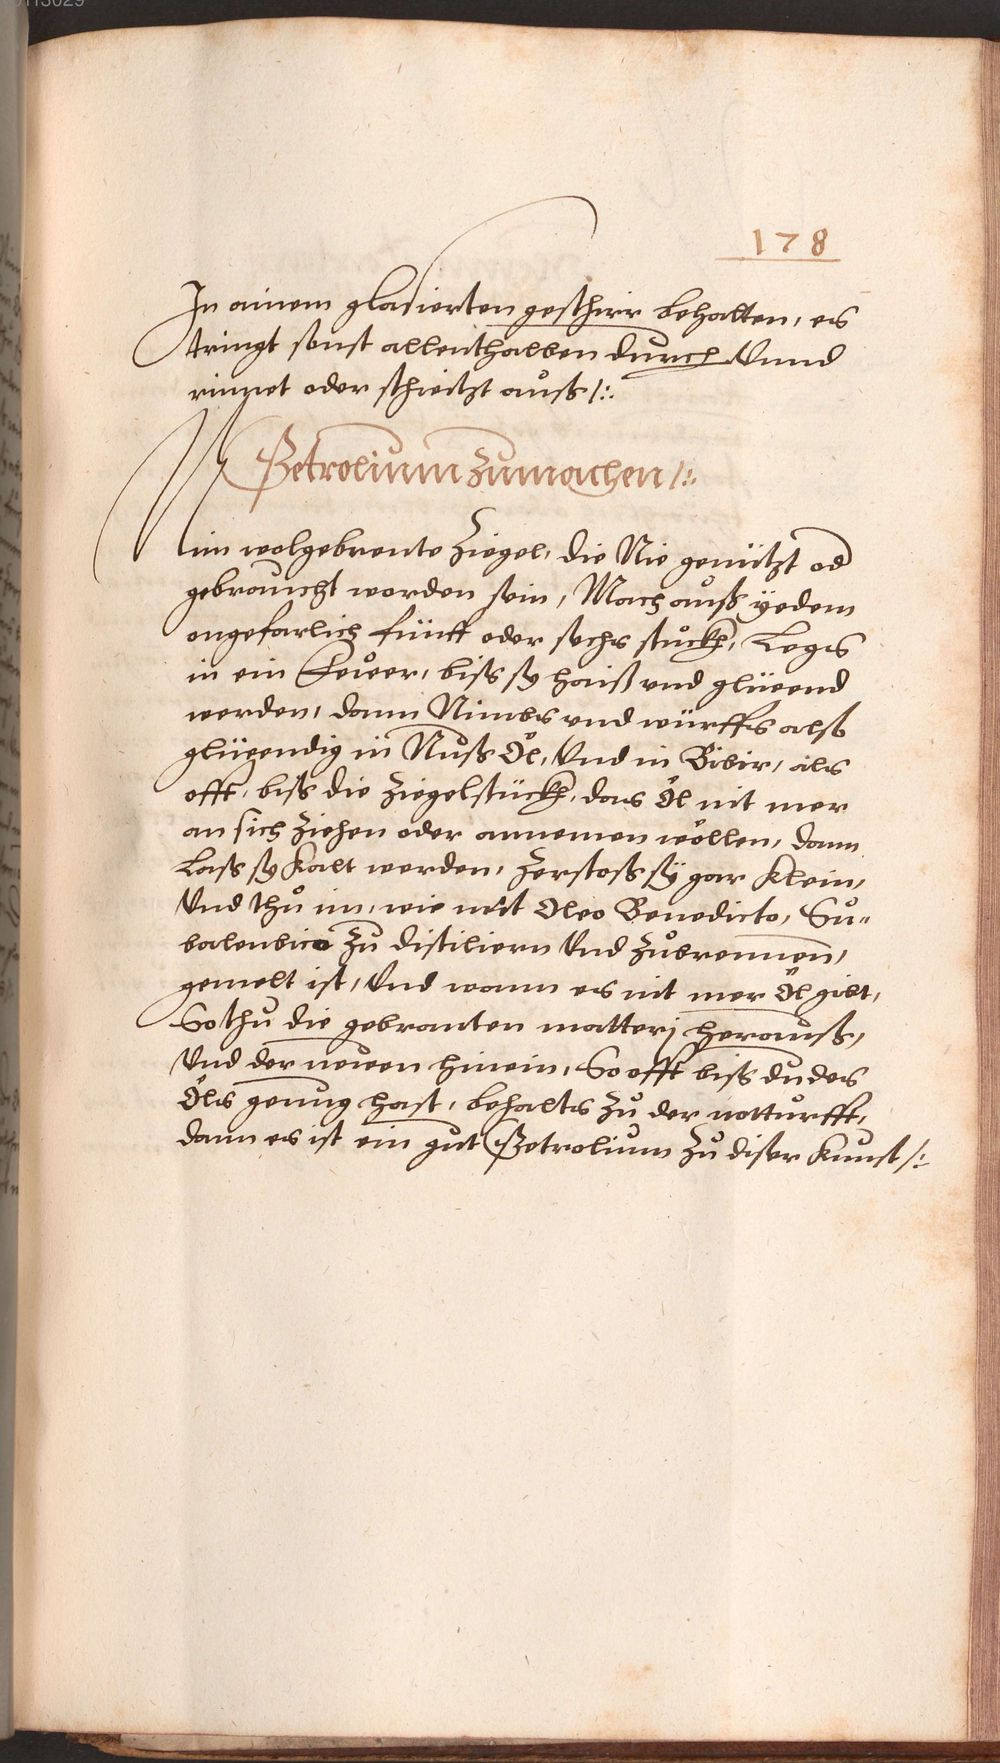 178
In ainem glasierten geschirr behalten, es
tringt sonst allenthalben durch Vnnd
rinnet oder schwitzt auß /:.
Petrolium zumachen /:.
Nim wolgebrente Ziegel, die Nie genützt od
gebraucht worden sein, Mach auß yedem
ongefarlich fünff oder sechs stuckh, Legs
in ein Feüer, biß sy haiß vnd glüeend
werden, dann Nimbs vnd würffs alß
glüeendig in Nuß Öl, Vnd in Bibir, als
offt, biß die Ziegelstückh, das Öl nit mer
an sich Ziehen oder annemen wöllen, dann
Laß sy Kalt werden, Zerstoß sÿ gar Klein,
Vnd thů im, wie mit Oleo Benedicto, Su-
balenbico Zů distiliern Vnd Zůbrennen,
gemelt ist, Vnd wann es nit mer Öl gibt,
So thu die gebranten matterj herauß,
Vnd der newen hinein, So offt biß du des
Öls genug hast, behalts Zů der notturfft,
dann es ist ein gut Petrolium Zů diser Kunst /: